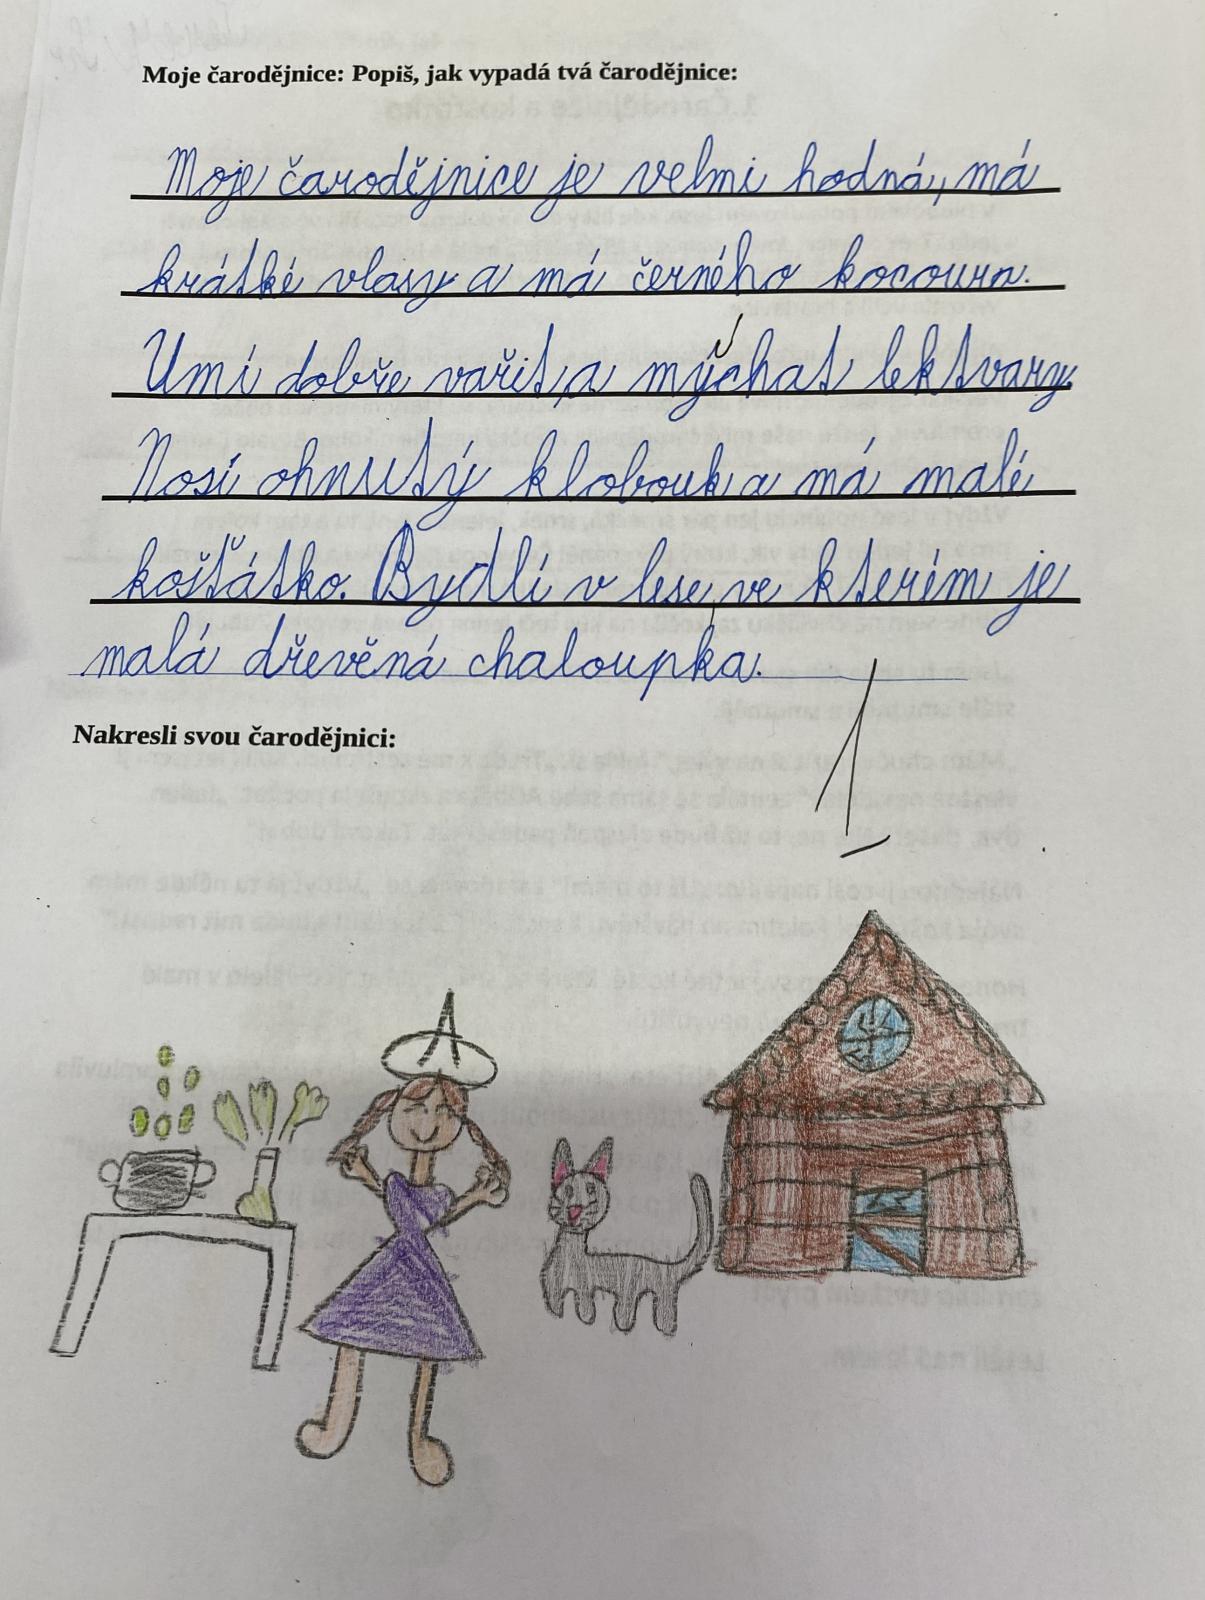 Moje čarodějnice: Popiš, jak vypadá tvá čarodějnice:
Moje čarodějnice je velmi hodná, má
krátké vlasy a má černého kocoura.
Umí dobře vařit, a mýchat lektvary.
Nosí ohnutý klobouk a má malé
košťátko. Bydlí v lese, ve kterém je
malá dřevěná chaloupka.
1
Nakresli svou čarodějnici: